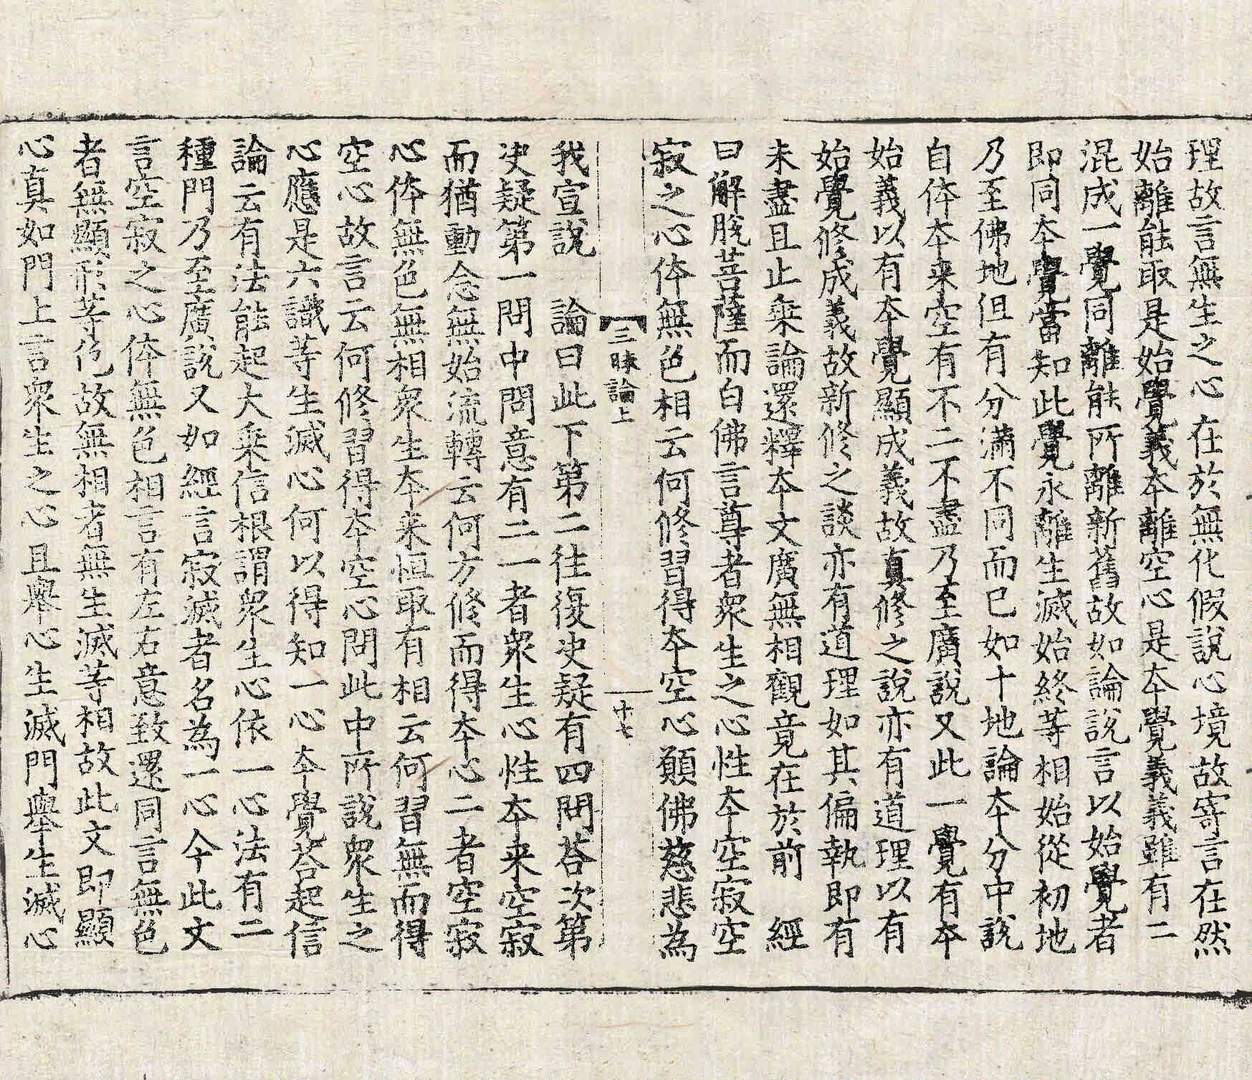 理故言無生之心在於無化假說心境故寄言在然
始離能取是始覺義本離空心是本覺義義雖有二
混成一覺同離能所離新舊故如論說言以始覺者
即同本覺當知此覺永離生滅始終等相始從初地
乃至佛地但有分滿不同而已如十地論本分中說
自体本来空有不二不盡乃至廣說又此一覺有本
始義以有本覺顯成義故真修之說亦有道理以有
始覺修成義故新修之談亦有道理如其偏執即有
未盡且止乗論還釋本文廣無相觀竟在於前　經
曰解脫菩薩而白佛言尊者衆生之心性本空寂空
寂之心体無色相云何修習得本空心願佛慈悲為
三昧論上　十七
我宣說　論曰此下第二往復決疑有四問荅次第
決疑第一問中問意有二一者衆生心性本来空寂
而猶動念無始流轉云何方修而得本心二者空寂
心体無色無相衆生本来恒取有相云何習無而得
空心故言云何修習得本空心問此中所說衆生之
心應是六識等生滅心何以得知一心本覺荅起信
論云有法能起大乗信根謂衆生心依一心法有二
種門乃至廣說又如經言寂滅者名為一心今此文
言空寂之心体無色相言有左右意致還同言無色
者無顯形等色故無相者無生滅等相故此文即顯
心真如門上言衆生之心且舉心生滅門舉生滅心